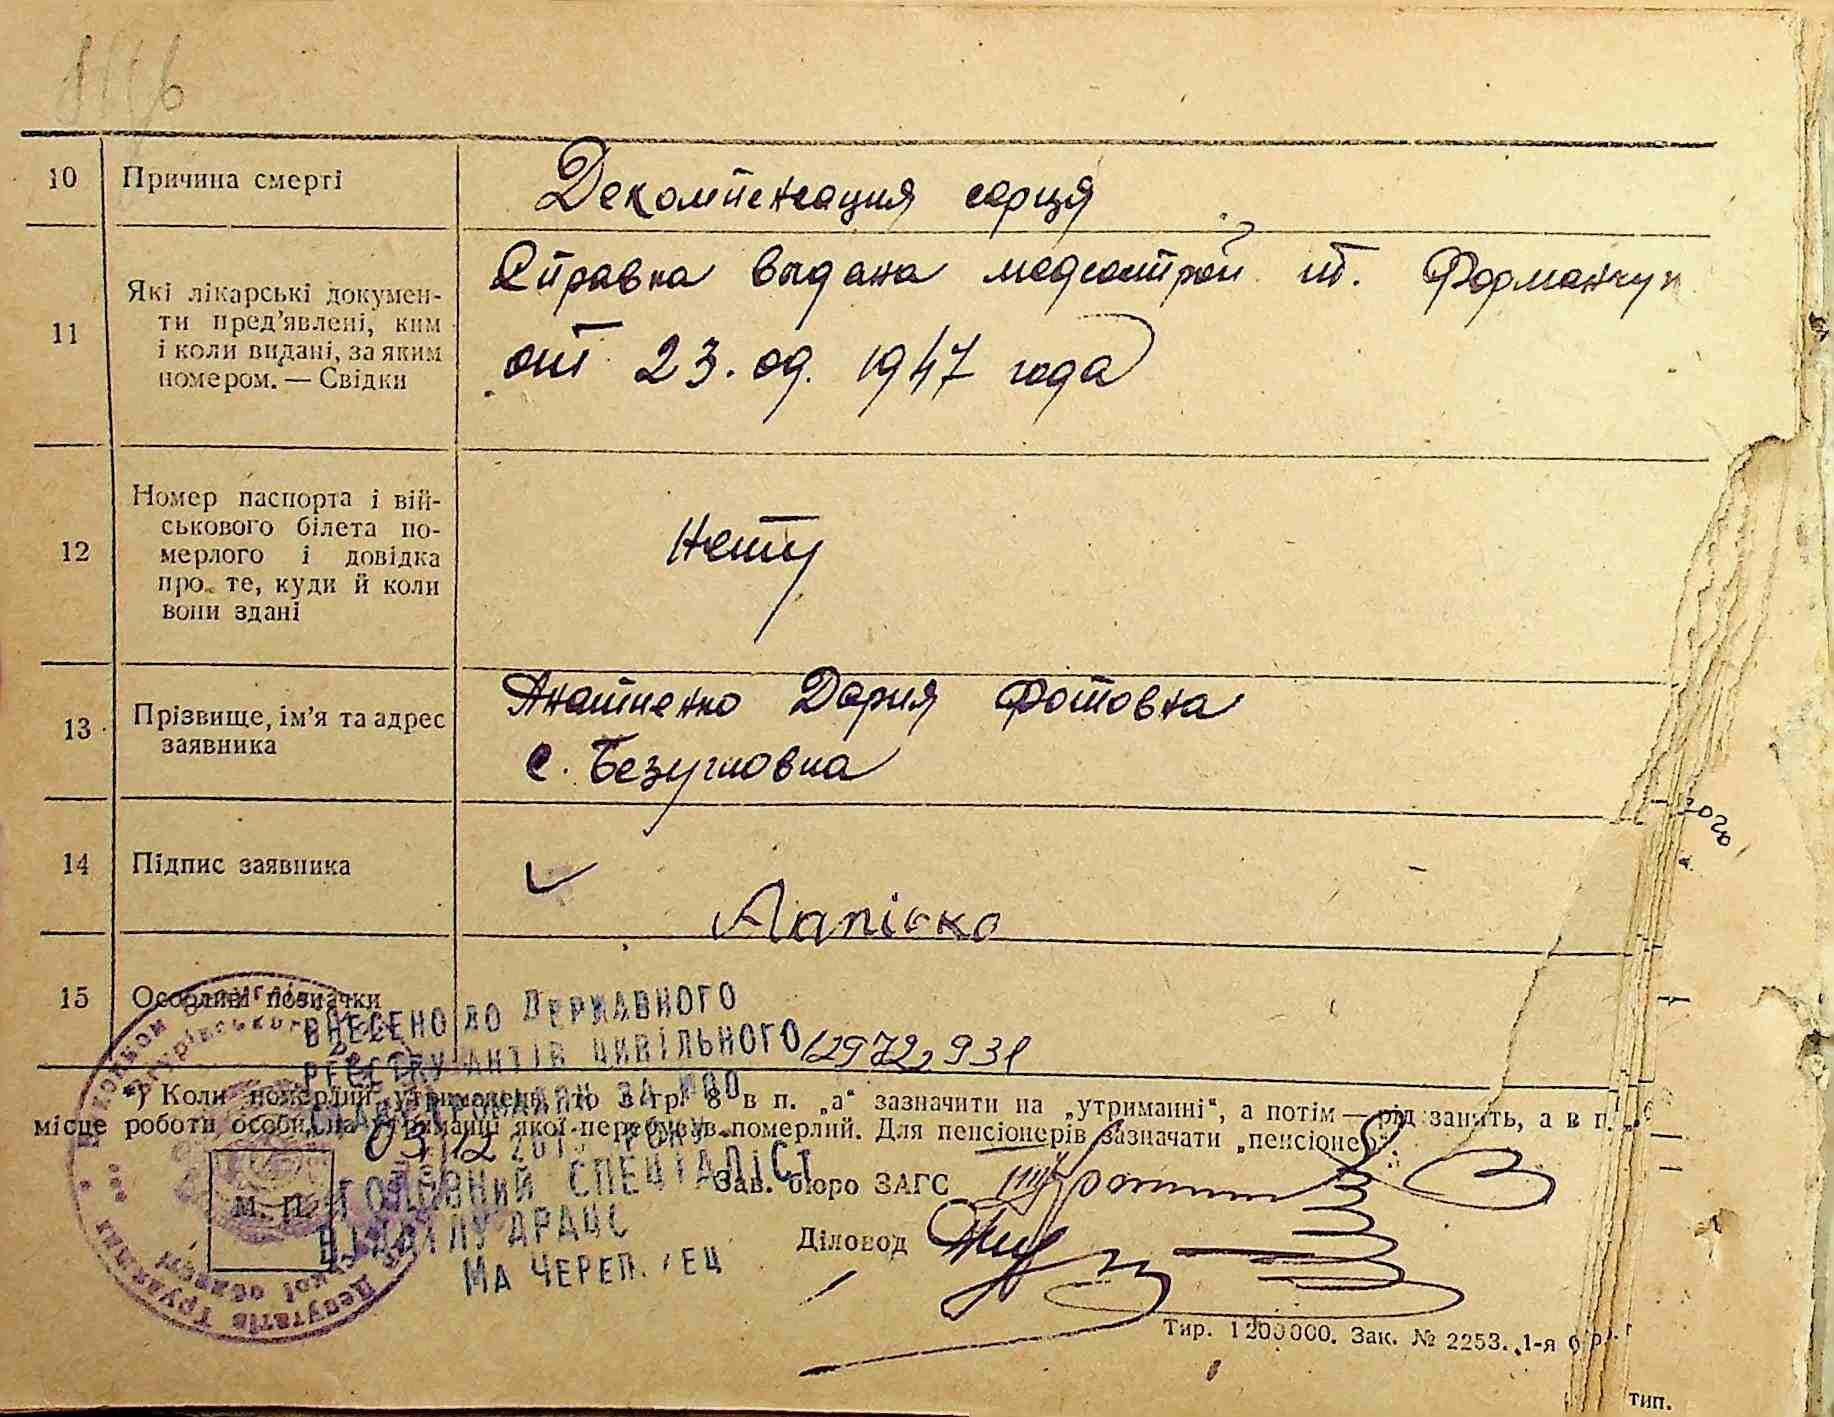 10 Причина смерті Декомпенсация сорця
11 Які лікарські докумен-
ти пред'явлені, ким
і коли видані, за яким
номером. — Свідки
Справка выдана медсестрой т. Форманчук
от 23. 09. 1947 года
12 Номер паспорта і вій-
ськового білета по-
мерлого і довідка
про те, куди й коли
вони здані
Нету
13 Прізвище, ім'я та адрес
заявника
Дария Фотовна
с. Безугловка
14 Підпис заявника
15 Особливі позначки
ВНЕСЕНО ДО ДЕРЖАВНОГО
РЕЄСТРУ АКТІВ ЦИВІЛЬНОГО
СТАНУ ГРОМАДЯН ЗА №00
12972931
*) Коли померлий утриманець, то в гр. 8 в п. „а“ зазначити на „утриманні“, а потім — рід занять, а в п.
місце роботи особи, на утриманні якої перебував померлий. Для пенсіонерів зазначати „пенсіонер“.
03 12 РОКУ
ГОЛОВНИЙ СПЕЦІАЛІСТ
ВІДДІЛУ ДРАЦС
М. П.
Зав. бюро ЗАГС
Діловод
Тир. 1200000. Зак. № 2253. 1-я
тип.